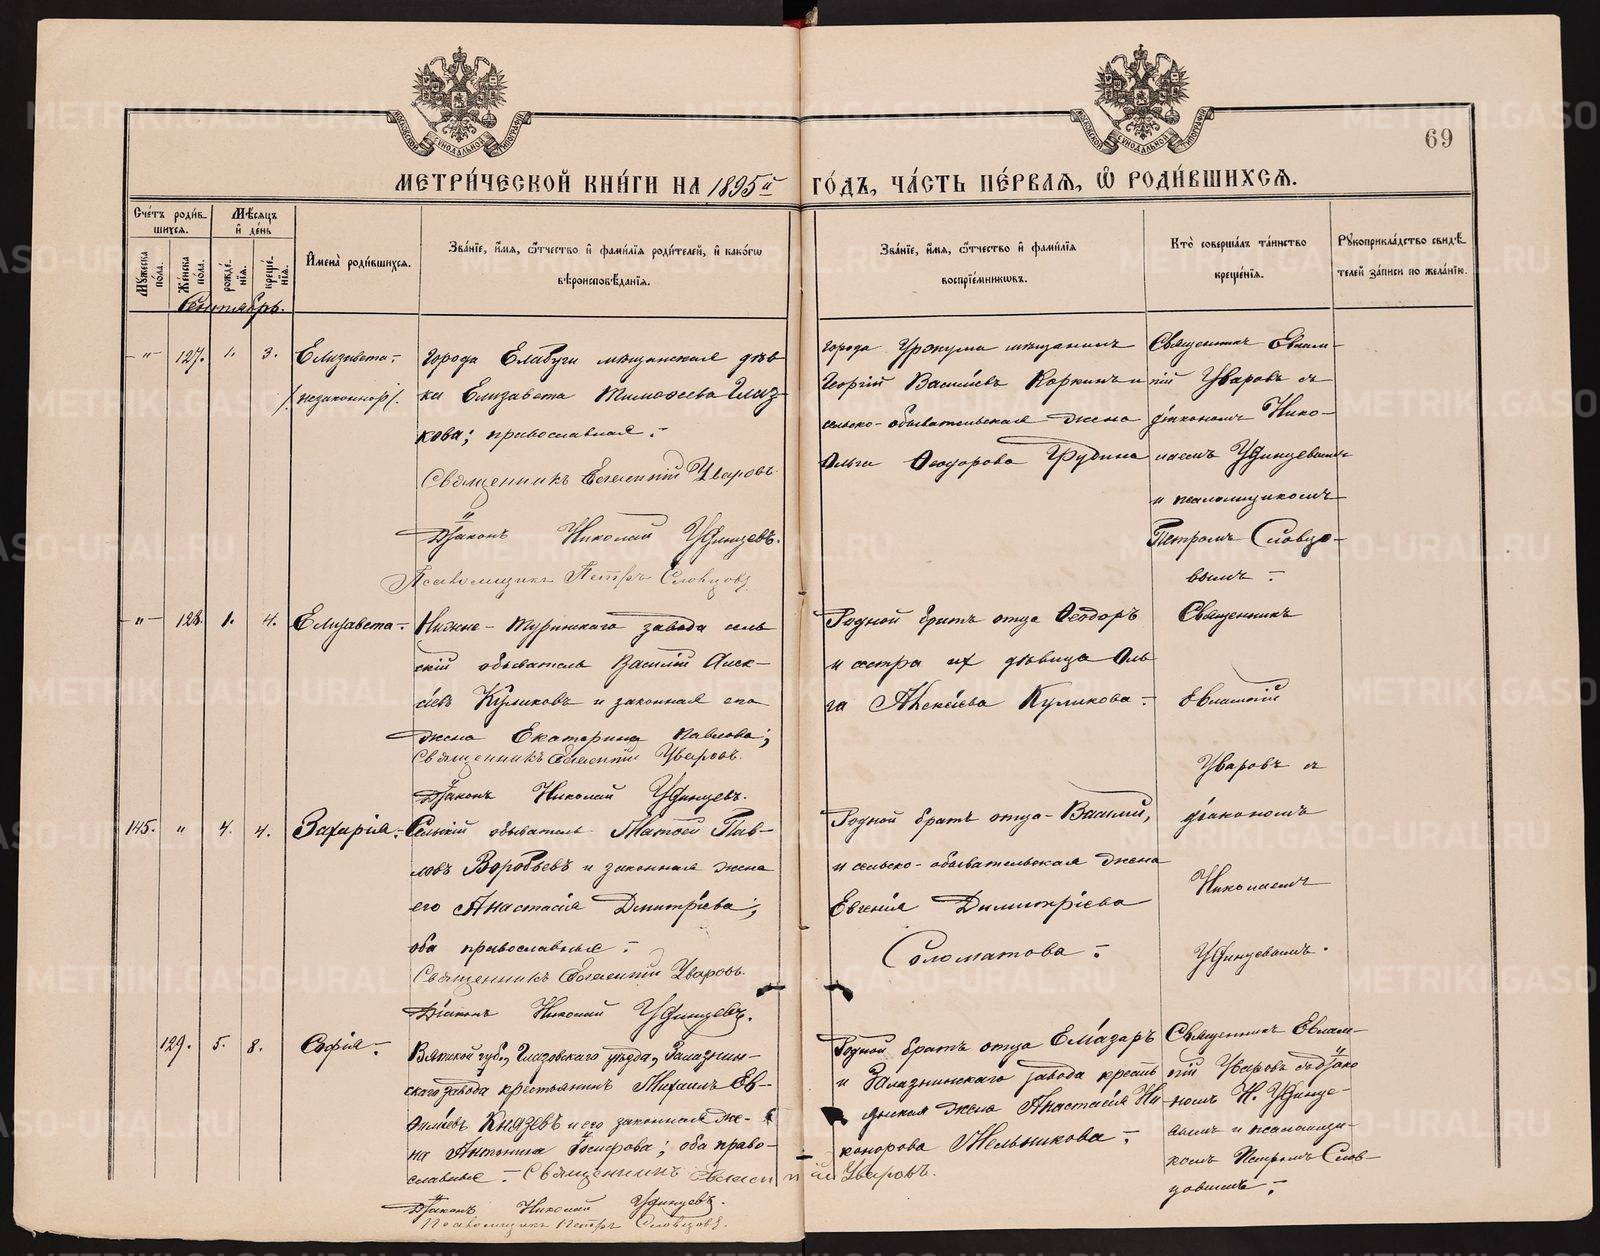 69
МЕТРИ́ЧЕСКОЙ КНИ́ГИ НА 1895й ГО́ДЪ, ЧА́СТЬ ПЕ́РВАЯ, Ѡ҆ РОДИ́ВШИХСЯ.
Сче́тъ роди́в-
шихся.
Мѣ́сяцъ
и҆ де́нь
Му́жеска
по́ла.
Же́нска
по́ла.
рожде́-
нїя.
креще́-
нїя.
И҆мена̀ роди́вшихся.
Зва́нїе, и҆́мя, ѻ҆́тчество и҆ фами́лїя роди́телей, и҆ како́гѡ
вѣроисповѣ́данїя.
Зва́нїе, и҆́мя, ѻ҆́тчество и҆ фами́лїя
воспрїе́мникѡвъ.
Кто̀ соверша́лъ та́инство
креще́нїя.
Рꙋкоприкла́дство свидѣ́-
телей за́писи по жела́нїю.
Сентябрь.
-"- 127. 1. 3. Елизавета -
/незаконнор/.
города Елабуги мѣщанская дѣв-
ка Елизавета Тимофеева Глаз-
кова; православная.-
Священникъ Евлампій Уваровъ.
Діаконъ Николай Удинцевъ.
Псаломщикъ Петръ Словцовъ
города Уржума мѣщанинъ
Георгій Васильевъ Коркинъ и
сельско-обывательская жена
Ольга Ѳеодорова Трубина
Священникъ Евлам-
пій Уваровъ съ
діакономъ Нико-
лаемъ Удинцевымъ
и псаломщикомъ
Петромъ Словцо-
вымъ.-
-"- 128. 1. 4. Елизавета.-
Нижне-Туринскаго завода сель
скій обыватель Василій Алек-
сѣевъ Куликовъ и законная его
жена Екатерина Павлова;
Священникъ Евлампій Уваровъ.
Діаконъ Николай Удинцевъ.
Родной братъ отца Ѳеодоръ
и сестра их дѣвица Оль
га Алексѣева Куликова.-
Священникъ
Евлампій
Уваровъ съ
діакономъ
Николаемъ
Удинцевымъ.
145. " 4. 4. Захарія.-
Сельскій обыватель Матѳей Пав-
ловъ Воробьевъ и законная жена
его Анастасія Дмитріева;
оба православные.-
Священникъ Евлампій Уваровъ.
Діаконъ Николай Удинцевъ.
Родной братъ отца - Василій,
и сельско-обывательская жена
Евгенія Димитріева
Соломатова.-
129. 5. 8. Софія.-
Вятской губ., Глазовскаго уѣзда, Залазнин-
скаго завода крестьянинъ Михаилъ Ев-
ѳиміевъ Князевъ и его законная же-
на Антонина Іосифова; оба право-
славные.- Священникъ Евлампій Уваровъ.
Діаконъ Николай Удинцевъ.
Псаломщикъ Петръ Словцовъ.
Родной братъ отца Елѣазаръ
и Залазнинскаго завода кресть
янская жена Анастасія Ни-
конорова Мельникова.-
Священникъ Евлам-
пій Уваровъ съ діако
номъ Н. Удинце-
вымъ и псаломщи-
комъ Петромъ Слов-
цовымъ.-
METRIKI.GASO-URAL.RU